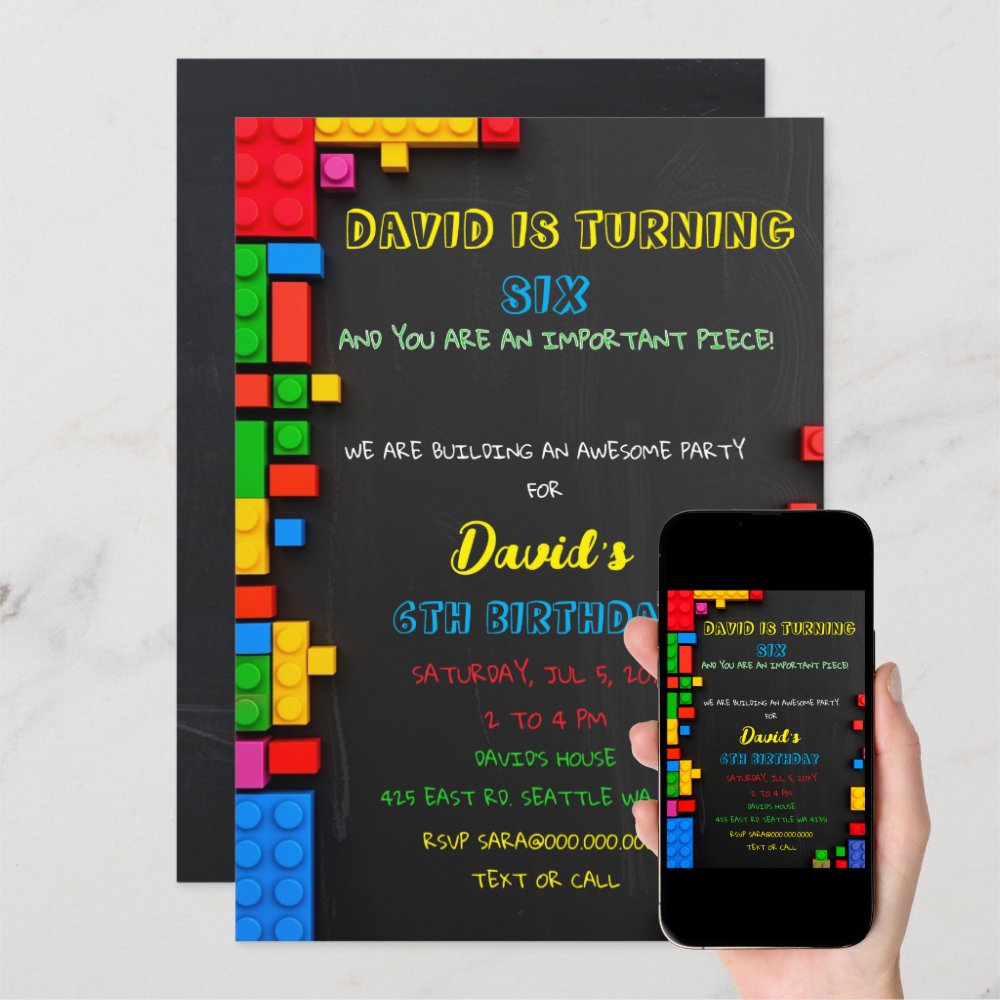 DAVID IS TURNING
SIX
AND YOU ARE AN IMPORTANT PIECE!
WE ARE BUILDING AN AWESOME PARTY
FOR
David's
6TH BIRTHDAY
SATURDAY, JUL 5, 20
2 TO 4 PM
DAVID'S HOUSE
425 EAST RD. SEATTLE WA
RSVP SARA@000.000.00
TEXT OR CALL
DAVID IS TURNING
SIX
AND YOU ARE AN IMPORTANT PIECE!
WE ARE BUILDING AN AWESOME PARTY
FOR
David's
6TH BIRTHDAY
SATURDAY, JUL 5, 20XY
2 TO 4 PM
DAVID'S HOUSE
425 EAST RD. SEATTLE WA
RSVP SARA@000.000.0000
TEXT OR CALL